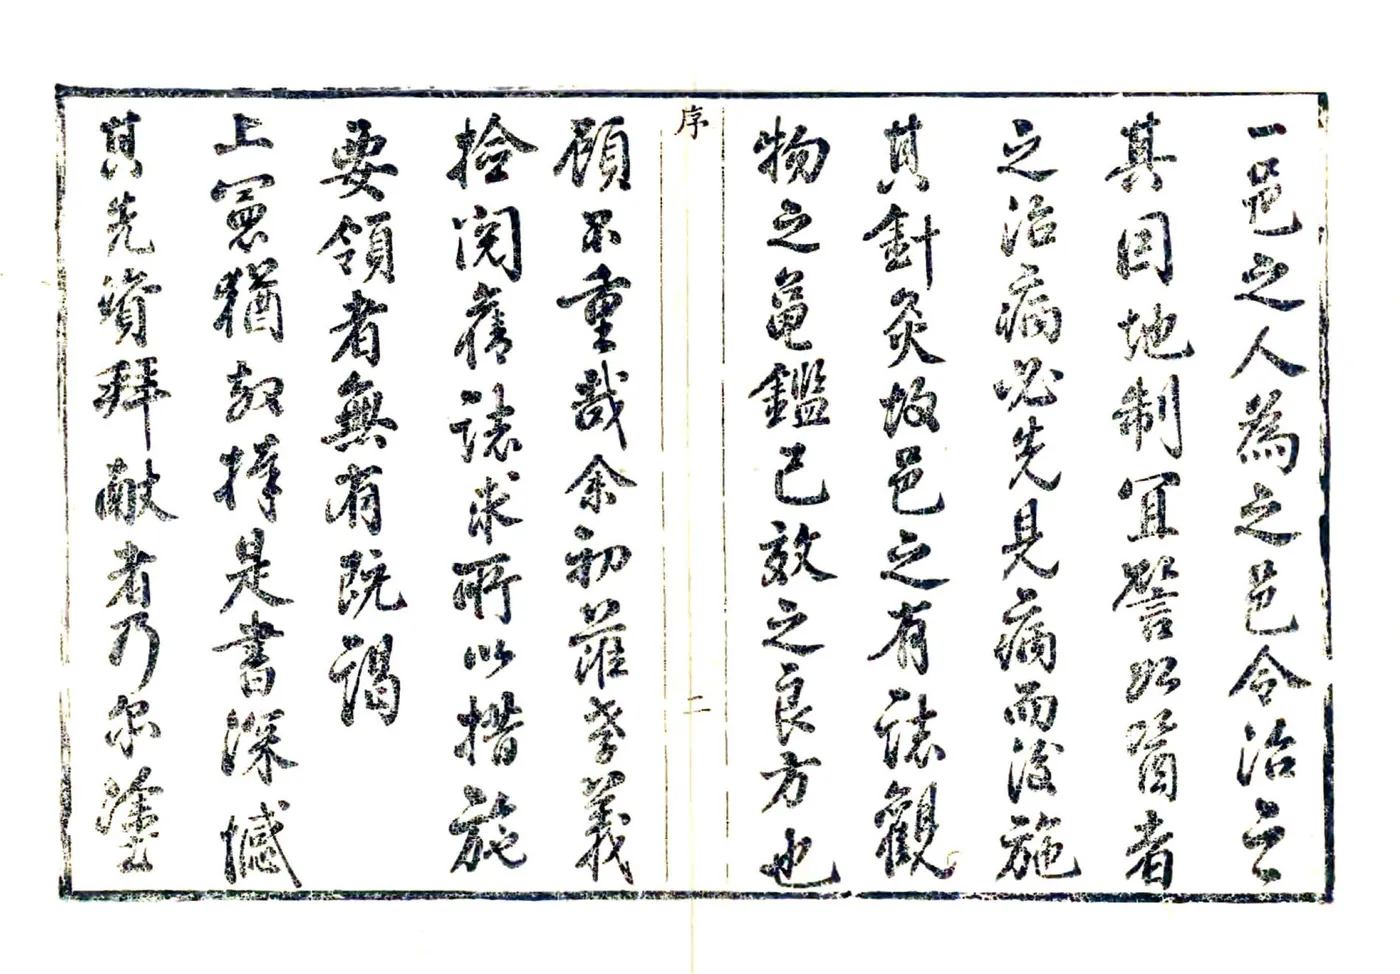 一邑之人為之邑令治之
其因地制宜譬如醫者
之治病必先見病而後施
其針灸故邑之有誌觀
物之龜鑑已效之良方也
序
二
顧不重哉余初蒞孝義
撿閱舊誌求所以措施
要領者無有既謁
上憲猶韧擇是書深憾
其先資拜献者乃尔塗